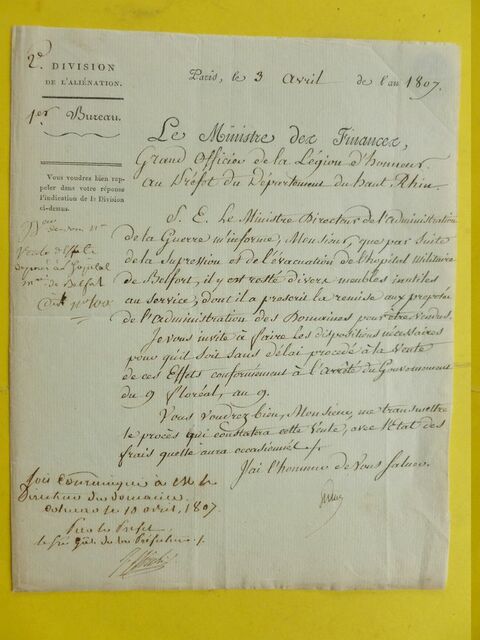 2e. DIVISION
DE L'ALIÉNATION.
1er Bureau.
Vous voudrez bien rap-
peler dans votre réponse
l'indication de la Division
ci-dessus.
Paris, le 3 Avril de l'an 1807.
Le Ministre des Finances,
Grand Officier de la Légion d'honneur.
au Préfet du Département du haut Rhin.
S. E. Le Ministre Directeur de l'administration
de la Guerre m'informe, Monsieur, que par suite
de la supression et de l'évacuation de l'hôpital militaire
de Belfort, il y est resté divers meubles inutiles
au service, dont il a prescrit la remise aux préposés
de l'administration des Domaines pour être vendus.
Je vous invite à faire les dispositions nécessaires
pour qu'il soit sans délai procédé à la Vente
de ces Effets conformément à l'arrêté du Gouvernement
du 9 floréal, an 9.
Vous voudrez bien, Monsieur, me transmettre
le procès qui constatera cette Vente, avec l'état des
frais qu'elle aura occasionnés.
J'ai l'honneur de Vous saluer.
Vente d'Effets
de Belfort
Soit Communiqué à M. le
Directeur des domaines.
Colmar le 10 avril 1807.
Pour le Préfet
le Sre Gal de la Préfecture